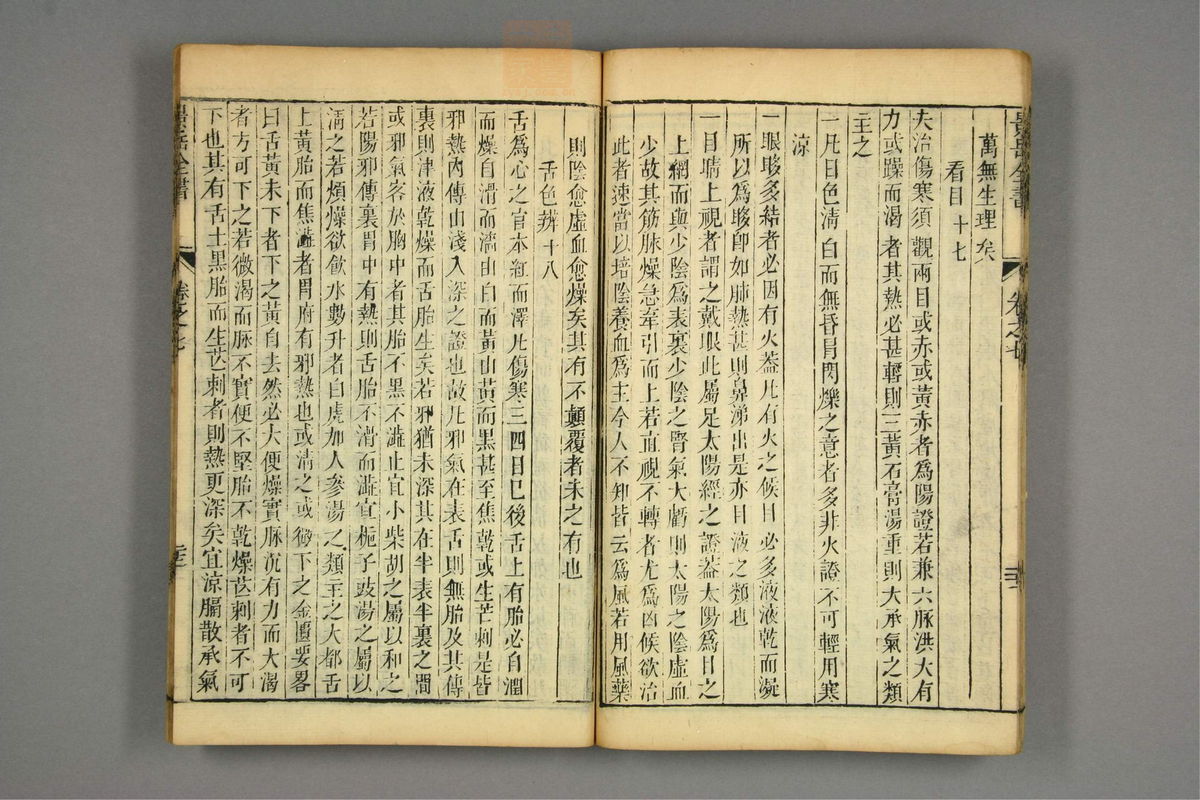 景岳全書 卷之七
萬無生理矣
看目 十七
夫治傷寒須觀兩目或赤或黃赤者爲陽證若兼六脉洪大有
力或躁而渴者其熱必甚輕則三黃石膏湯重則大承氣之類
主之
一凡目色淸白而無昏冒閃爍之意者多非火證不可輕用寒
涼
一眼眵多結者必因有火葢凡有火之候目必多液液乾而凝
所以爲眵卽如肺熱甚則鼻涕出是亦目液之類也
一目睛上視者謂之戴眼此屬足太陽經之證葢太陽爲目之
上網而與少陰爲表裏少陰之腎氣大虧則太陽之陰虛血
少故其筋脉燥急牽引而上若直視不轉者尤爲凶候欲治
此者速當以培陰養血爲主今人不知皆云爲風若用風藥
則陰愈虛血愈燥矣其有不顛覆者未之有也
舌色辨 十八
舌爲心之官本紅而澤凡傷寒三四日已後舌上有胎必自潤
而燥自滑而濇由白而黃由黃而黑甚至焦乾或生芒刺是皆
邪熱內傳由淺入深之證也故凡邪氣在表舌則無胎及其傳
裏則津液乾燥而舌胎生矣若邪猶未深其在半表半裏之間
或邪氣客於胸中者其胎不黑不澁止宜小柴胡之屬以和之
若陽邪傳裏胃中有熱則舌胎不滑而澁宜梔子豉湯之屬以
淸之若煩燥欲飮水數升者白虎加人參湯之類主之大都舌
上黃胎而焦澁者胃府有邪熱也或淸之或微下之金匱要畧
曰舌黃未下者下之黃自去然必大便燥實脉沉有力而大渴
者方可下之若微渴而脉不實便不堅胎不乾燥芒刺者不可
下也其有舌上黑胎而生芒刺者則熱更深矣宜涼膈散承氣
景岳全書 卷之七